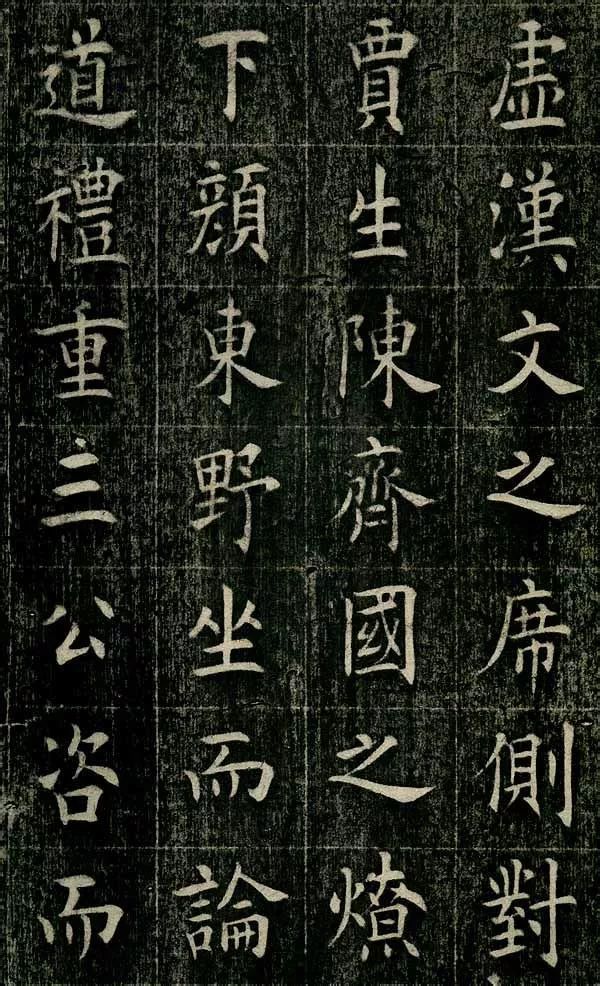 虛漢文之席側對
賈生陳齊國之燎
下顏東野坐而論
道禮重三公咨而